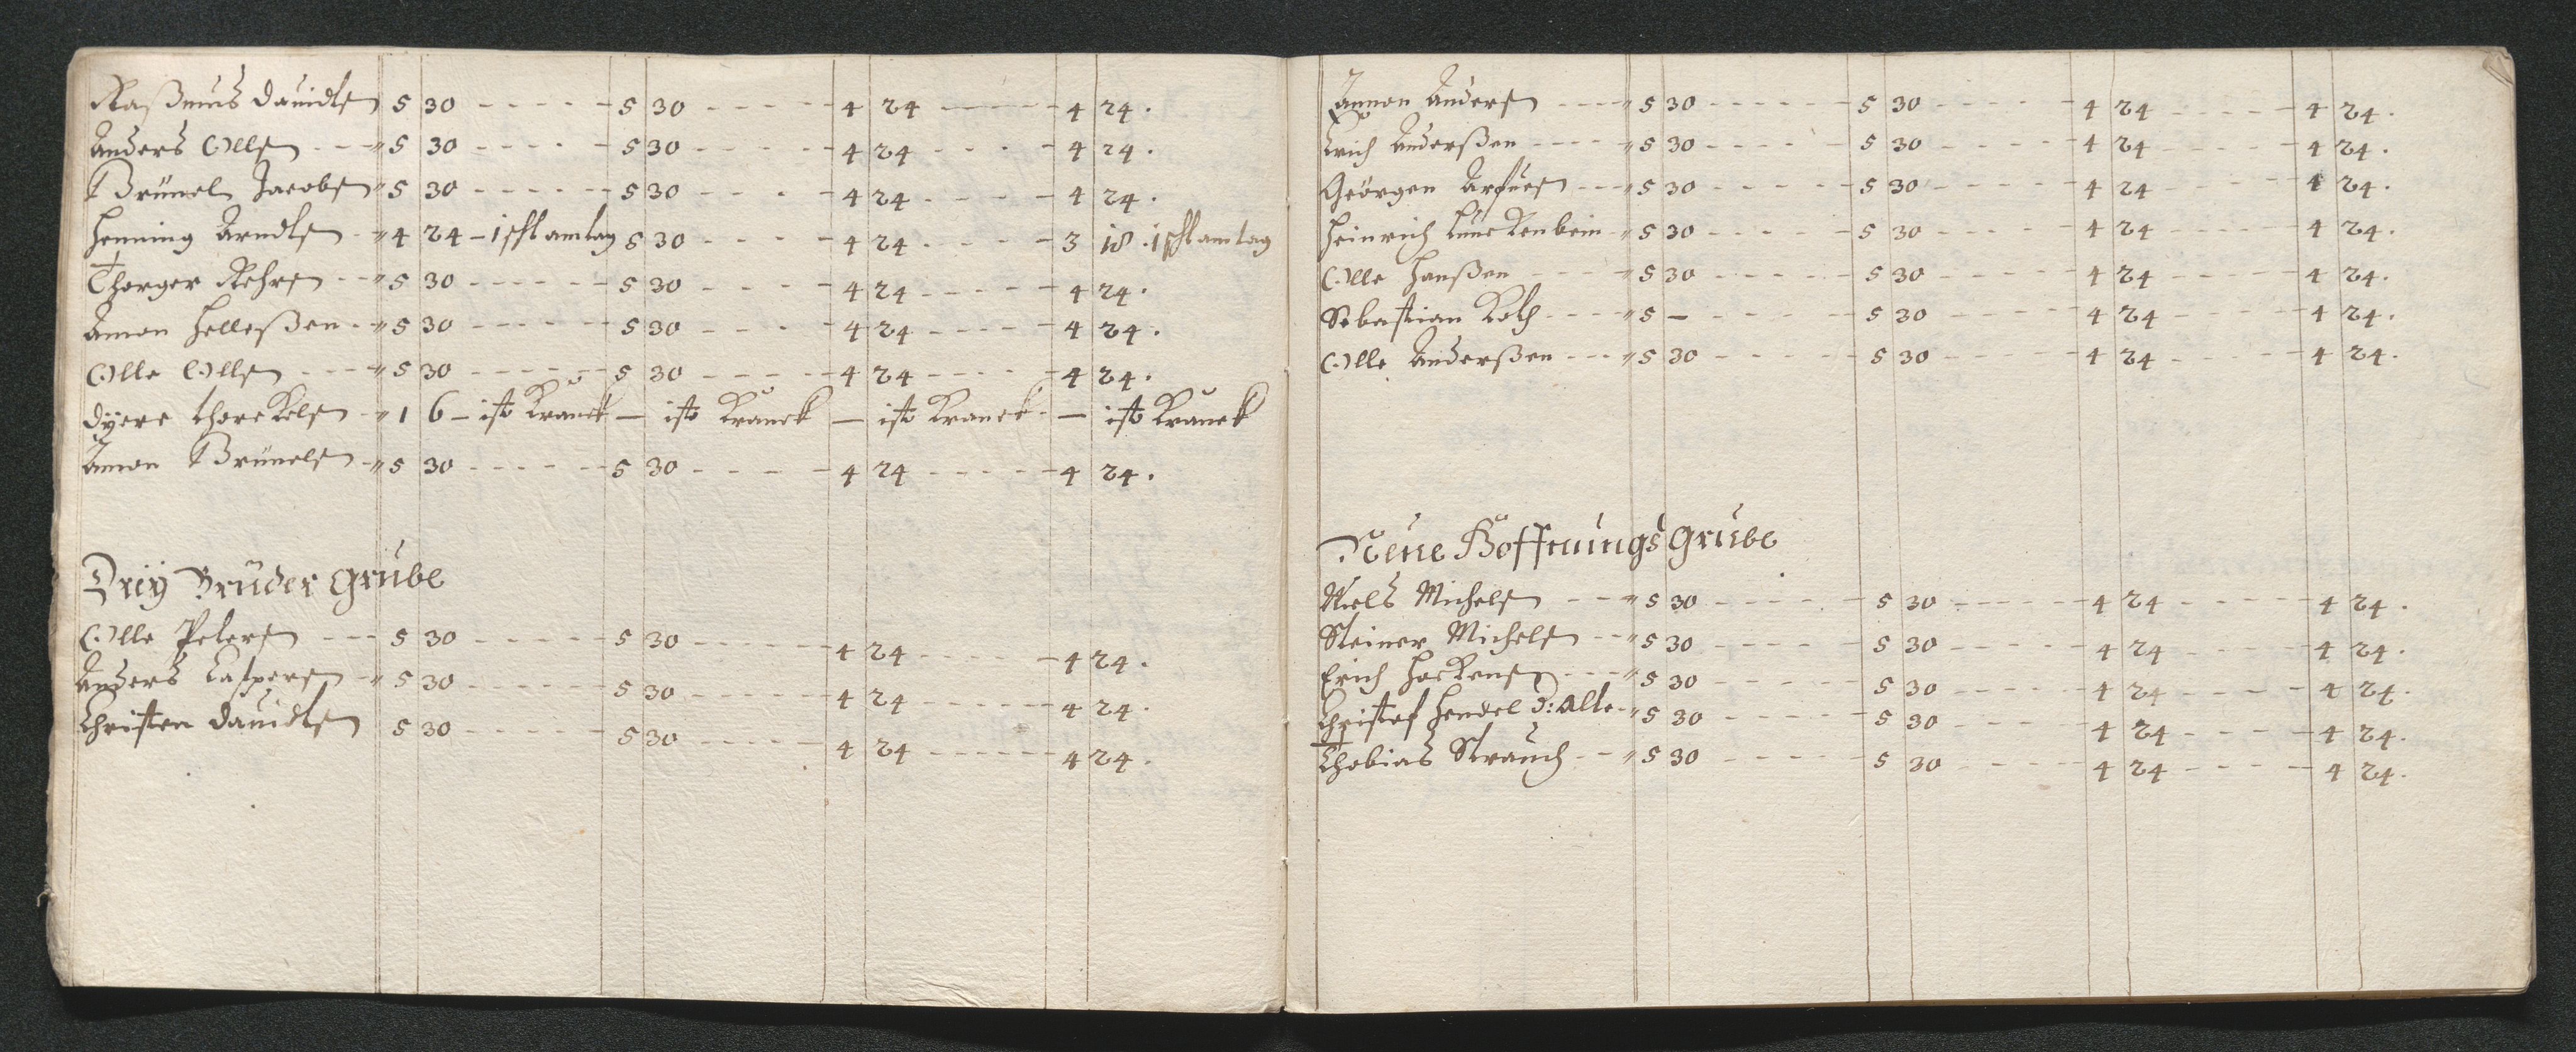 Raßmus Dauidtsen 5 30 - - - - - 5 30 - - - - - 4 24 - - - - - 4 24.
Anders Ollsen - - " 5 30 - - - - - 5 30 - - - - - 4 24 - - - - 4 24.
Brünel Jacobsen " 5 30 - - - - - 5 30 - - - - 4 24 - - - - 4 24.
Henning Arndtsen - " 4 24 - 1 schl am tag 5 30 - - - - 4 24 - - - - 3 18 . 1 schl am tag
Thorger Rehrsen - - " 5 30 - - - - - 5 30 - - - - 4 24 - - - - - 4 24.
Amon Helleßen - " 5 30 - - - - - 5 30 - - - - 4 24 - - - - - 4 24.
Olle Ollsen - - - " 5 30 - - - - - 5 30 - - - - - 4 24 - - - - - 4 24.
Dÿere thorekelsen - " 1 6 - ist Kranck - ist Kranck - ist Kranck - ist Kranck
Amon Brünelsen - " 5 30 - - - - - 5 30 - - - - - 4 24 - - - - - 4 24.
Dreÿ Brüder Grube
Olle Petersen - - - 5 30 - - - - - 5 30 - - - - - 4 24 - - - - - 4 24.
Anders Caspersen - " 5 30 - - - - - 5 30 - - - - - 4 24 - - - - - 4 24.
Christen Dauidtsen 5 30 - - - - - 5 30 - - - - - 4 24 - - - - - 4 24.
Ammon Andersen - - - " 5 30 - - - - - 5 30 - - - - - 4 24 - - - - - 4 24.
Erich Anderßen - - - - " 5 30 - - - - - 5 30 - - - - - 4 24 - - - - - 4 24.
Geörgen - - - " 5 30 - - - - - 5 30 - - - - - 4 24 - - - - - 4 24.
Heinrich Lünekenbein - " 5 30 - - - - - 5 30 - - - - - 4 24 - - - - - 4 24.
Olle Hanßen - - - - " 5 30 - - - - - 5 30 - - - - - 4 24 - - - - - 4 24.
Sebastian Koth - - - - " 5 - - - - - - 5 30 - - - - - 4 24 - - - - - 4 24.
Olle Anderßen - - - " 5 30 - - - - - 5 30 - - - - - 4 24 - - - - - 4 24.
Neue Hoffnungs Grube
Niels Michelsen - - - " 5 30 - - - - - 5 30 - - - - - 4 24 - - - - - 4 24.
Steiner Michelsen - - " 5 30 - - - - - 5 30 - - - - - 4 24 - - - - - 4 24.
Erich Hackensen - - - " 5 30 - - - - - 5 30 - - - - - 4 24 - - - - - 4 24.
Christof Hendel d: alte - " 5 30 - - - - - 5 30 - - - - - 4 24 - - - - - 4 24.
Thobias Strauch - - " 5 30 - - - - - 5 30 - - - - - 4 24 - - - - - 4 24.